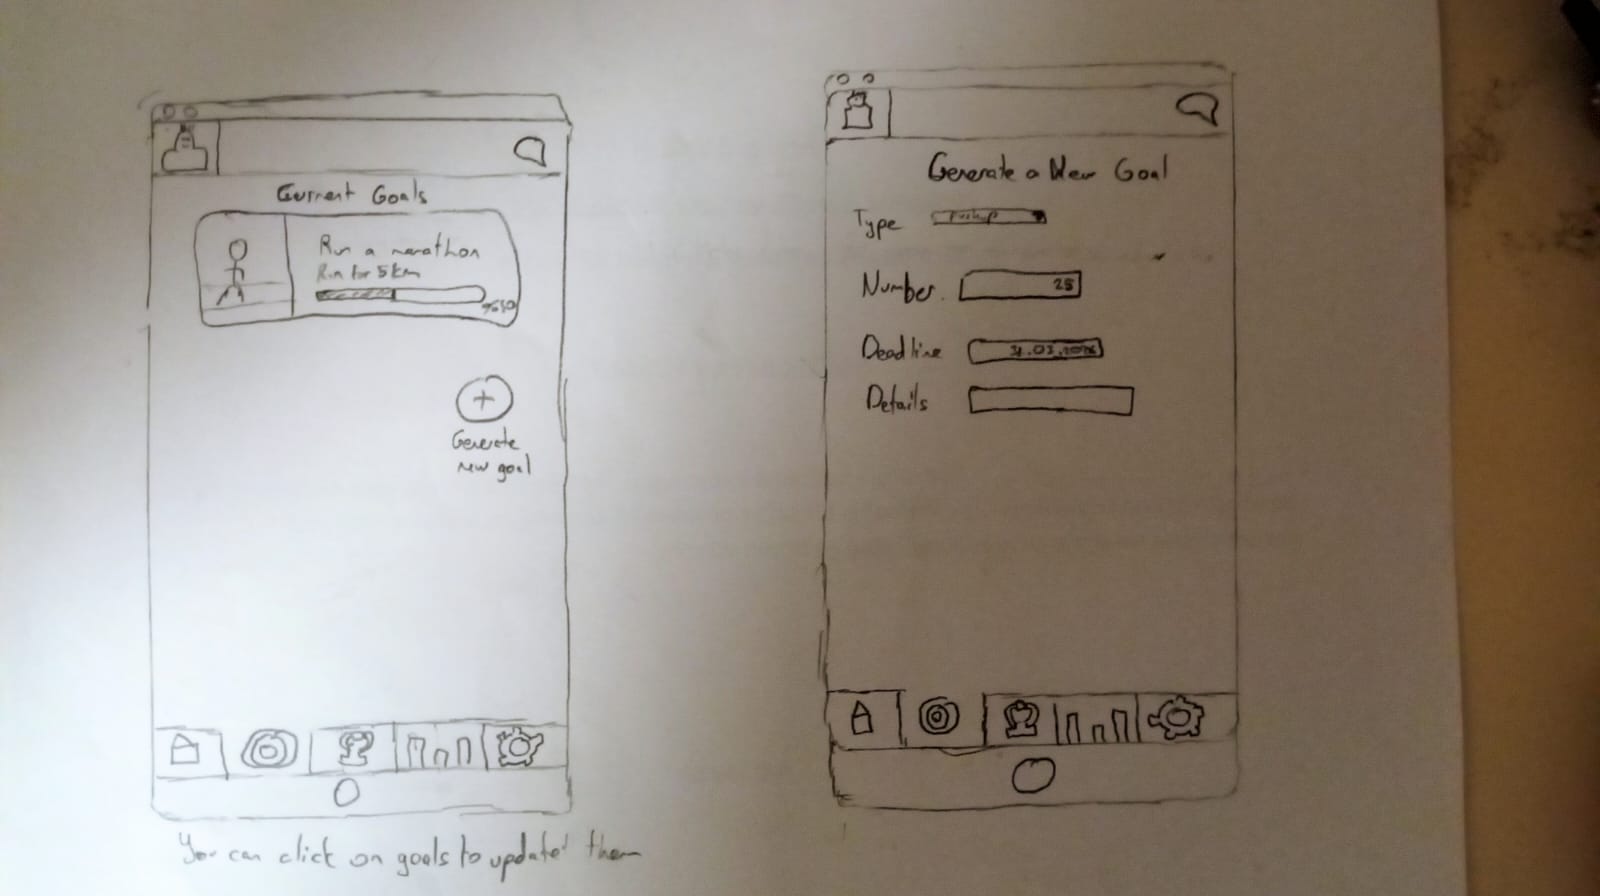 Current Goals
Run a marathon
Run for 5km
%50
+
Generate
new goal
You can click on goals to updated them
Generate a New Goal
Type
Pushup
Number.
25
Deadline
Details